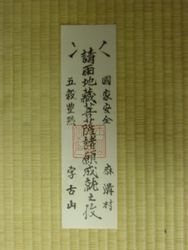 國家安全　麻溝村
請雨地藏菩薩諸願成就之攸
五穀豊熟　字古山